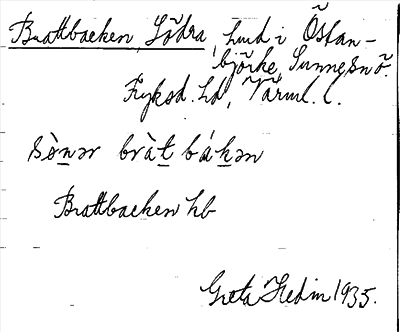 Brattbacken, Södra, hmd i Östan-
björke, Sunne sn ö.
Fryksd. hd, Värml. l.
sònər bràt bákən
Brattbacken hb
Greta Hedin 1935.